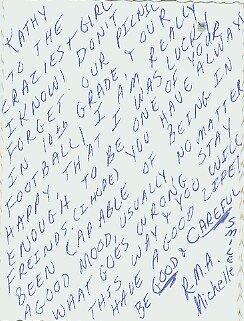 KATHY
TO THE
CRAZIEST GIRL
I KNOW! DON'T
FORGET OUR PICNIC
IN 10th GRADE & OUR
FOOTBALL! I AM REALLY
HAPPY THAT I WAS LUCKY
ENOUGH TO BE ONE OF YOUR
FREINDS. (I HOPE) YOU HAVE ALLWAYS
BEEN CAPABLE OF BEING IN
A GOOD MOOD, USUALLY NO MATTER
WHAT GOES WRONG. STAY
THIS WAY & YOU WILL
HAVE A GOOD LIFE!
BE GOOD & CAREFUL
R.M.A.
Michelle